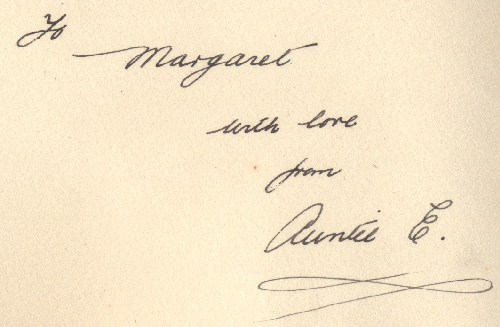 To
Margaret
with love
from
Auntie E.